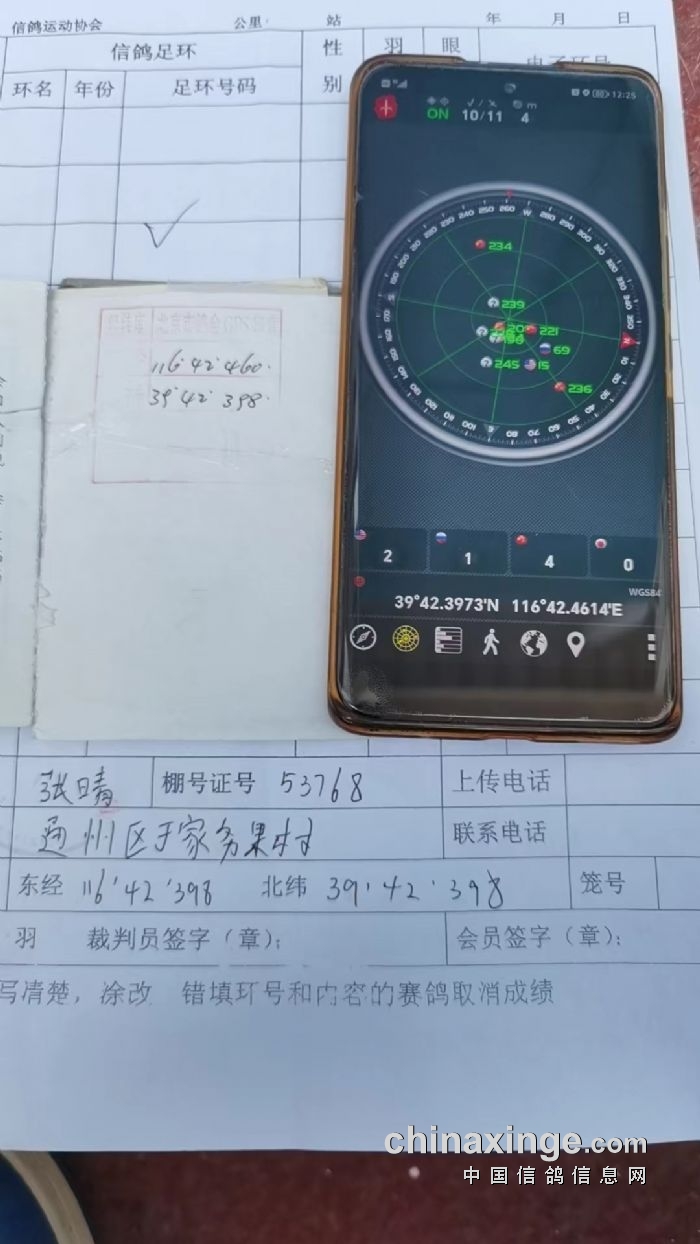 信鸽运动协会 公里 站 年 月 日
信鸽足环 性别 羽 眼 电子环号
环名 年份 足环号码
12:25
ON 10/11 4
234
239
221
69
245 15
236
116°42'460
39°42'398
2 1 4 0
WGS84
39°42.3973'N 116°42.4614'E
张晴 棚号证号 53768 上传电话
通州区于家务果村 联系电话
东经 116°42'398 北纬 39°42'398 笼号
羽 裁判员签字（章）： 会员签字（章）：
写清楚，涂改 错填环号和内容的赛鸽取消成绩
chinaxinge.com
中国信鸽信息网